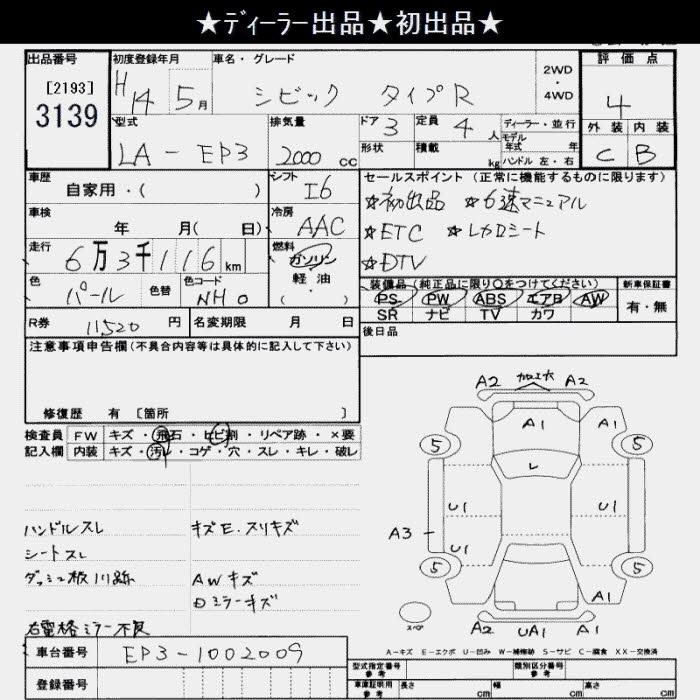 ★ディーラー出品★初出品★
出品番号 初度登録年月 車名・グレード 評価点
[2193] H14 5月 シビック タイプR 2WD・4WD 4
3139
型式 排気量 ドア 3 定員 4人 ディーラー・並行 外装 内装
LA-EP3 2000cc 形状 積載 kg モデル年式 年 C B
ハンドル 左・右
車歴 シフト セールスポイント (正常に機能するものに限ります)
自家用・( ) I6 ☆初出品 ☆6速マニュアル
車検 冷房 ☆ETC ☆レカロシート
年 月( 日) AAC ☆DTV
走行 燃料
6万3千116km ガソリン
色 色替 色コード 軽油 装備品 (純正品に限り○をつけてください) 新車保証書
パール NH0 ・( ) PS PW ABS エアB AW 有・無
SR ナビ TV カワ
R券 11520円 名変期限 月 日 後日品
注意事項申告欄 (不具合内容等は具体的に記入して下さい)
修復歴 有 [箇所 ]
検査員 FW キズ・飛石・ヒビ割・リペア跡・×要
記入欄 内装 キズ・汚レ・コゲ・穴・スレ・キレ・破レ
ハンドルスレ キズE.スリキズ
シートスレ
ダッシュ板 AWキズ
Dミラーキズ
右電格ミラー不良
A2 A2
A1 A1
5 5
L
U1 U1
A3 U1
5 5
A1 A1
スペア A2 UA1 A1
A-キズ E-エクボ U-凹み W-補修跡 S-サビ C-腐食 XX-交換済
車台番号 EP3-1002009
登録番号
型式指定番号 参考 類別区分番号 参考
車庫証明用 参考 長さ cm 幅 cm 高さ cm